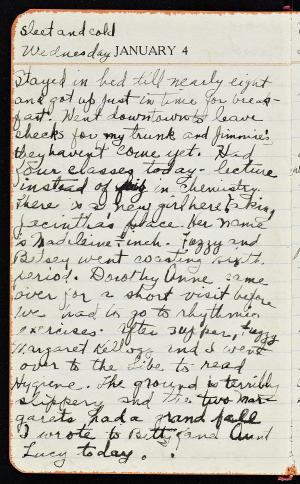 Sleet and cold
Wednesday JANUARY 4
Stayed in bed till nearly eight
and got up just in time for break-
fast. Went downtown to leave
checks for my trunk and Jimmie's
they haven't come yet. Had
four classes today - lecture
instead of in Chemistry.
There is a new girl here taking
Jacintha's place. Her name
is Madeleine Finch. Fuzzy and
Betsey went coasting
period. Dorothy Anne came
over for a short visit before
we had to go to rhythmic
exercises. After supper, Fuzzy
Margaret Kellogg and I went
over to the Libe to read
Hygiene. The ground is terribly
slippery and the two Mar-
garets had a grand fall
I wrote to Betty and Aunt
Lucy today.